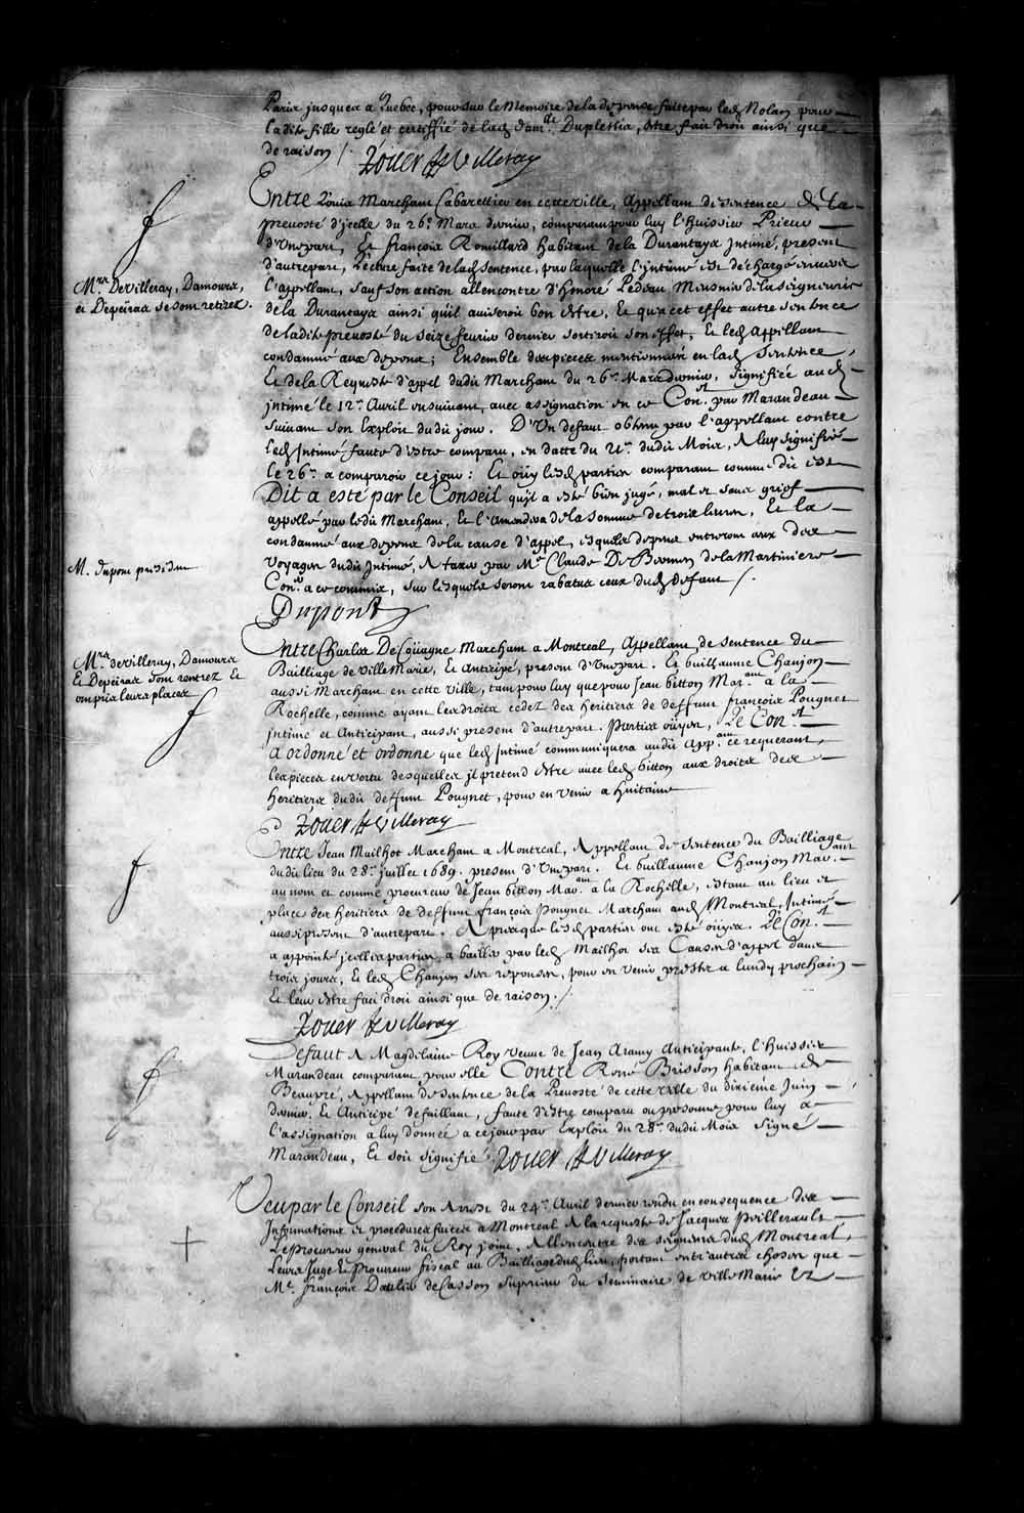 Paris jusques a Quebec, pour sur le Memoire de la depense faite par led Nolan pour
ladite fille reglé et certiffié de lad dam.lle Duplessis, estre fait droit ainsi que
de raison /. Roüer de Villeray
Entre Louis Marchant Cabarettier en cette ville, Appellant de sentence de la
prevosté d'jcelle du 26e Mars dernier, comparant pour luy l'huissier Prieur
d'Une part, Et françois Romillard habitant de la Durantaye Jntimé, present
Mrs DeVilleray, Damours,
et Depeiras se sont retirez.
d'autre part, Lecture faite de lad sentence, par laquelle l'jntimé est déchargé envers
l'appellant, sauf son action allencontre d'honoré Ledeau Meusnier de la seigneurie
de la Durantaye ainsi qu'il aviseroit bon estre, Et que cet effet autre sentence
de ladite prevosté du seize fevrier dernier sortiroit son effet, Et led appellant
condamné aux depens; Ensemble des pieces mentionnées en lad Sentence,
Et de la Requeste d'appel dudit Marchant du 26e Mars dernier, signifiée aud
jntimé le 12e Avril ensuivant, avec assignation en ce Con.el par Marandeau
suivant son Exploit dudit jour. D'Un defaut obtenu par l'appellant contre
led Jntimé faute d'estre comparu, en datte du 21e dudit Mois, A luy signifié
le 26e a comparoir ce jour: Et oüy lesd parties comparant comme dit est
Dit a esté par le Conseil qu'jl a esté bien jugé, mal et sans grief
appellé par ledit Marchant, Et l'amendera de la somme de trois livres, Et l'a
condamné aux depens de la cause d'appel, esquels depens entreront aux des
M. dupont presidant
voyages dudit Jntimé, A taxer par Me Claude De Bermen de la Martiniere
Con.er a ce commis, sur lesquels seront rabatus ceux dud defaut /.
Dupont
Entre Charles De Coüagne Marchant a Montreal, Appellant de sentence du
Mrs deVilleray, Damours
Et Depeiras sont rentrez Et
ont pris leurs places
Bailliage de Ville Marie, Et Anticipé, present d'Une part. Et Guillaume Chanjon
aussi Marchant en cette ville, tant pour luy que pour Jean Gitton Mar.ant a la
Rochelle, comme ayant les droits cedez des heritiers de deffunt françois Pougnet
jntimé et Anticipant, aussi present d'autre part. Parties oüyes, Le Con.el
a ordonné et ordonne que led Jntimé communiquera audit app.ant ce requerant,
les pieces en vertu desquelles jl pretend estre avec led Gitton aux droits des
heritiers dudit deffunt Pougnet, pour en venir a huitaine
Roüer de Villeray
Entre Jean Mailhot Marchant a Montreal, Appellant de Sentence du Bailliage
dudit lieu du 28e juillet 1689. present d'Une part. Et Guillaume Chanjon Mar.ant
au nom et comme procureur de Jean Gitton Mar.ant a la Rochelle, estant au lieu et
place des heritiers de deffunt françois Pougnet Marchant aud Montreal, Jntimé
aussi present d'autre part. Apres que lesd parties ont esté oüyes. Le Con.el
a appointé jcelles parties, a bailler par led Mailhot ses Causes d'appel dans
trois jours, Et led Chanjon ses reponses, pour en venir prests a lundy prochain
Et leur estre fait droit ainsi que de raison. /.
Roüer de Villeray
Defaut A Magdelaine Roy veuve de Jean Aramy Anticipante, l'huissier
Marandeau comparant pour elle Contre René Brisson habitant de
Beaupré, Appellant de sentence de la Prevosté de cette ville du dixieme Juin
dernier, Et Anticipé defaillant, faute d'estre comparu ou personne pour luy a
l'assignation a luy donnée a ce jour par Exploit du 28e dudit Mois signé
Marandeau, Et soit signifié. Roüer de Villeray
Veu par le Conseil son Arrest du 24e Avril dernier rendu en consequence des
Jnformations et procedures faites a Montreal A la requeste de Jacques Poillerault
Le procureur general du Roy joint, Allencontre des seigneurs dud Montreal,
Leurs Juge Et procureur fiscal au Bailliage dud lieu, portant entr'autres choses que
Me françois Dollier de Casson Superieur du Seminaire de Ville Marie Et